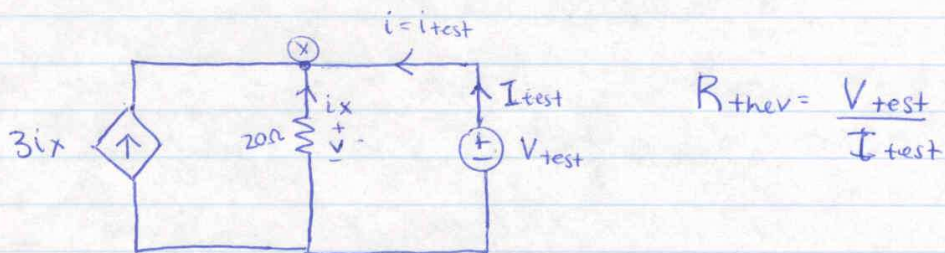 i = itest
X
3ix
20Ω
ix
+
v
-
Itest
+
-
Vtest
Rthev = Vtest
Itest